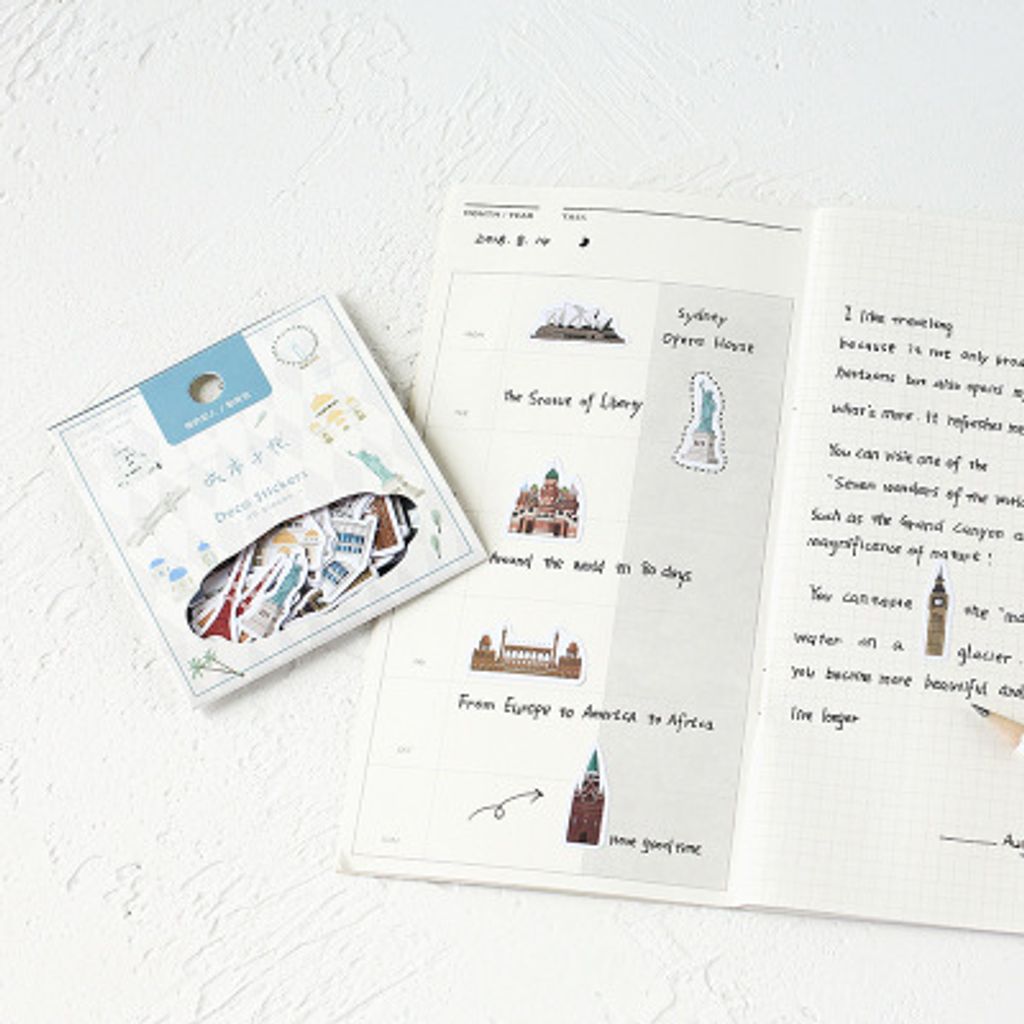 Deco Stickers
MONTH / YEAR
2018. 8. 14
Sydney
Opera House
the Statue of Liberty
Around the world in 80 days
From Europe to America to Africa
Have good time
I like traveling
because it not only broa
horizons but also opens my
what's more. It refreshes me
You can visit one of the
"Seven wonders of the world
such as the Grand Canyon a
magnificence of nature!
You can the
water on a glacier.
you become more beautiful and
live longer